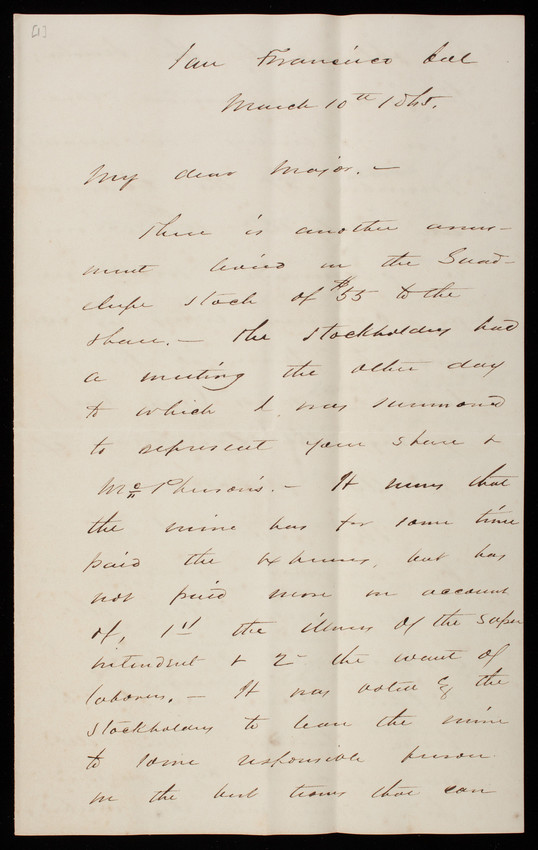 [1]
San Francisco Cal
March 10th 1865.
My dear Major. –
There is another assess-
ment levied on the Guad-
alupe stock of $55 to the
share. – The stockholders had
a meeting the other day
to which I was summoned
to represent your share &
McPherson's. – It seems that
the mine has for some time
paid the expenses, but has
not paid more on account
of, 1st the illness of the super
intendent & 2d the want of
laborers. – It was voted by the
stockholders to lease the mine
to some responsible person
on the best terms that can